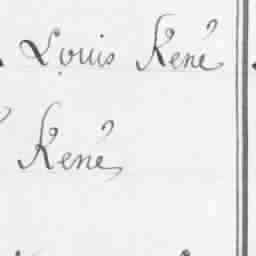 Louis René
René